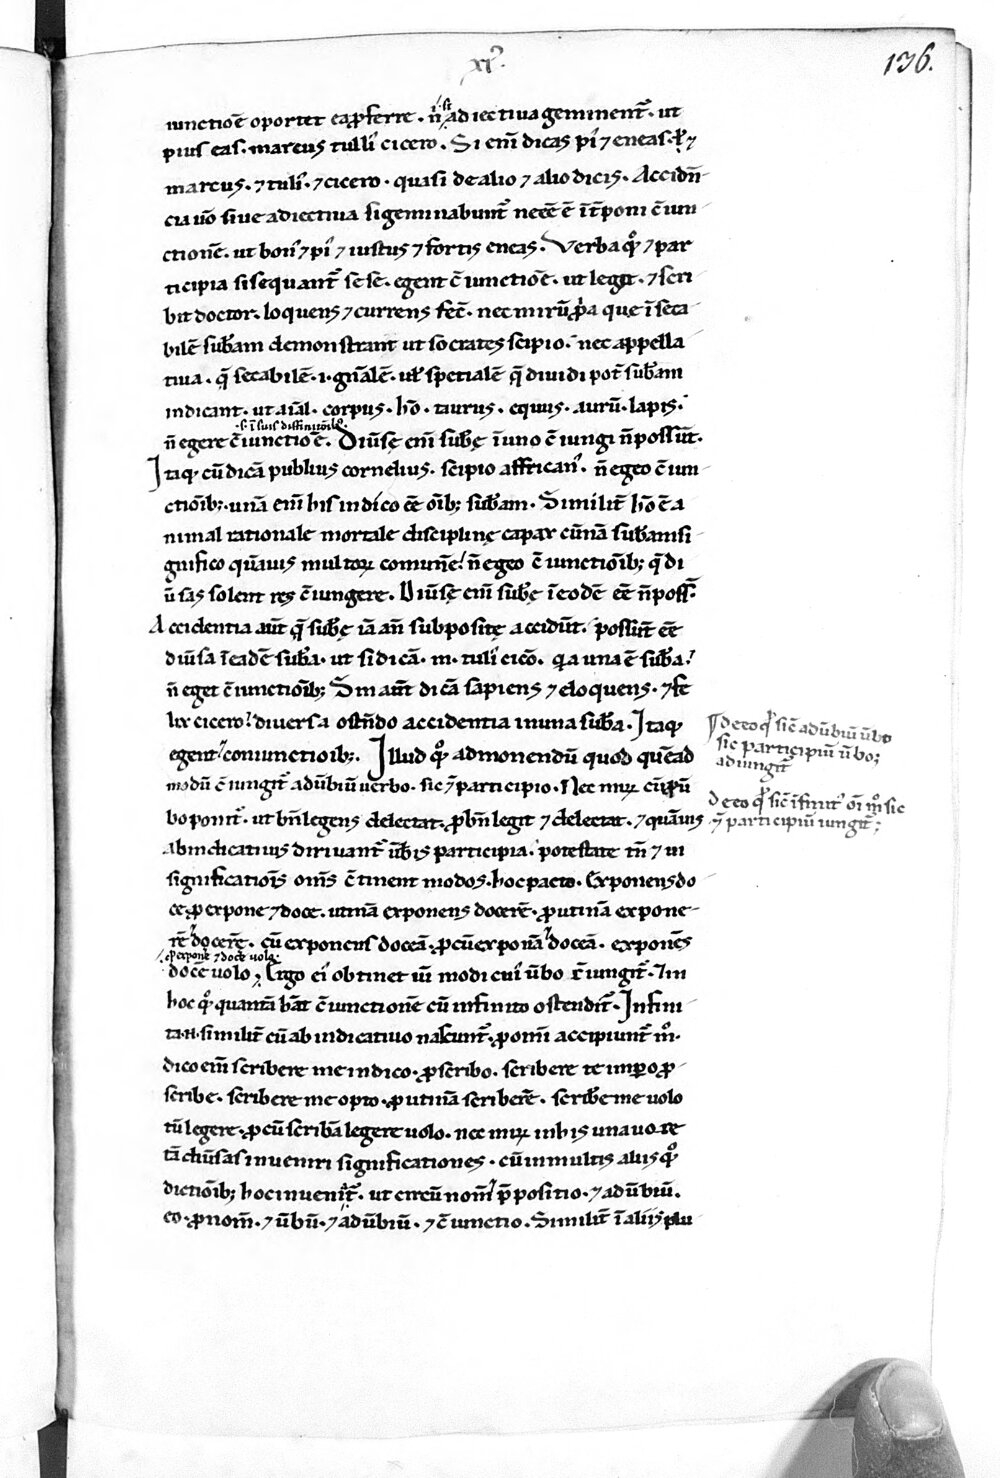 xi⁹.
136.
iunctiōe oportet ea ꝓferre. n̄ ad iectiua geminent᷑. ut
pius eas. marcus tulli᷒ cicero. Si enī dicas pi᷒ ⁊ eneas. ł ⁊
marcus. ⁊ tuli᷒. ⁊ cicero. quasi de alio ⁊ alio dicis. Accidn̄
cia ūo siue adiectiua si geminabunt᷑ necē ē īt̄poni c̄iun
ctionē. ut bon᷒ ⁊ pi᷒ ⁊ iustus ⁊ fortis eneas. Verba qͦꝫ ⁊ par
ticipia si sequant᷑ se se. egent c̄iunctiōe. ut legit. ⁊ scri
bit doctor. loquens ⁊ currens fec̄. nec mirū ꝓp̄a que īseca
bilē sub̄am demonstrant ut socrates scipio. nec appella
tiua. q̄ secabilē. i. gn̄alē. uł spetialē q̄ diuidi pot̄ sub̄am
indicant. ut aīal. corpus. hō. taurus. equus. aurū. lapis.
.s. ī suis diffinitiōib᷒.
n̄ egere c̄iunctiōe. Diūsę enī sub̄ę ī uno c̄iungi n̄ possūt.
Itaqꝫ cū dicā publius cornelius. scipio affrican᷒. n̄ egeo c̄iun
ctiōibꝫ. unā enī his indico eē oībꝫ sub̄am. Similit̄ hō ē a
nimal rationale mortale disciplinę capax cū unā sub̄am si
gnifico quāuis multoꝝ comunē. n̄ egeo c̄iunctiōibꝫ q̄ di
ūsas solent res c̄iungere. Diūsę enī sub̄ę ī eodē eē n̄ poss̄.
Accidentia aūt q̄ sub̄ę iā an̄ subpositę accidūt. possūt eē
diūsa ī eadē sub̄a. ut si dicā. m. tuli᷒ cicō. qia una ē sub̄a.
n̄ eget c̄iunctiōibꝫ. Sin aūt dicā sapiens ⁊ eloquens. ⁊ fe
lix cicero. diuersa ostn̄do accidentia in una sub̄a. Itaqꝫ
egent coniunctioibꝫ. Illud qͦꝫ admonendū quod quēad
modū c̄iungit᷑ adūbiū uerbo. sic ⁊ participio. Nec miꝝ cū ꝓ ū
bo ponit᷑. ut bn̄ legens delectat. ꝓ bn̄ legit ⁊ delectat. ⁊ quāuis
ab indicatiuis diriuant᷑ ūbis participia. potestate tn̄ ⁊ ui
significatiōis om̄s c̄tinent modos. hoc pacto. Exponens do
ce. ꝓ expone ⁊ doce. utinā exponens docerē. ꝓ utinā expone
rē ⁊ docerē. cū exponens doceā. ꝓ cū exponā ⁊ doceā. exponēs
ꝓ exponē ⁊ docē uolo.
docē uolo. Ergo ei᷒ obtinet uī modi cui᷒ ūbo c̄iungit᷑. In
hoc qͦꝫ quantā hāt c̄iunctionē cū infinito ostendit᷑. Infini
ta .n. similit̄ cū ab indicatiuo nascunt᷑. ꝓ omī accipiunt᷑ mͦ.
dico enī scribere me indico. ꝓ scribo. scribere te impo ꝓ
scribe. scribere me opto. ꝓ utinā scriberē. scribē me uolo
tū legere. ꝓ cū scribā legere uolo. nec miꝝ in his una uo te
tā diūsas inueniri significationes. cū in multis aliis qͦꝫ
dictiōibꝫ hoc inuenit᷑. ut circū nom̄ p̄positio. ⁊ adūbiū.
eo. ꝓnom̄. ⁊ ūbū. ⁊ adūbiū. ⁊ c̄iunctio. Similit̄ ī aliis plu
de eo qͩ sic̄ adūbiū ūbo
sic participiū ūboꝫ
adiungit᷑
de eo qͩ sic̄ īfinit᷒ oī mͦ sic
⁊ participiū iungit᷑ꝫ